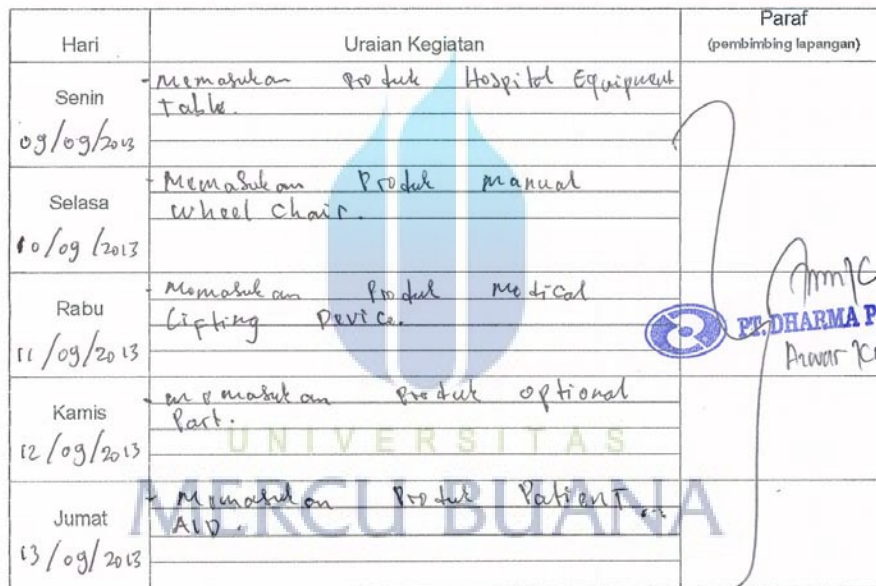 Hari Uraian Kegiatan Paraf
(pembimbing lapangan)
Senin
09/09/2013
- Memasukan Produk Hospital Equipment
Table.
Selasa
10/09/2013
- Memasukan Produk Manual
Wheel Chair.
Rabu
11/09/2013
- Memasukan Produk Medical
Lifting Device.
Kamis
12/09/2013
- Memasukan Produk Optional
Part.
Jumat
13/09/2013
- Memasukan Produk Patient
AID.
PT. DHARMA P
UNIVERSITAS
MERCU BUANA